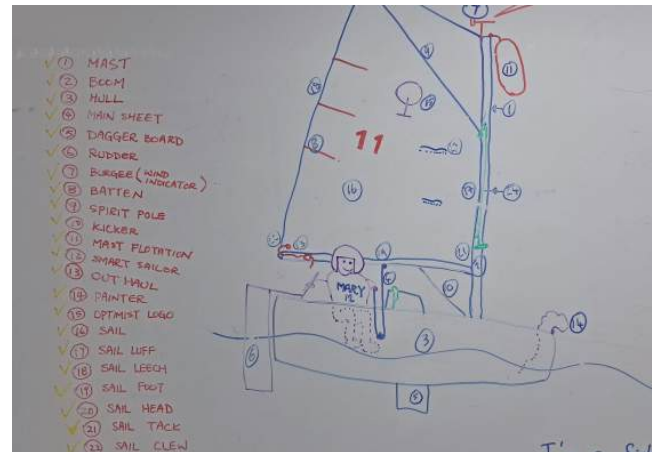 ✓ ① MAST
✓ ② BOOM
✓ ③ HULL
✓ ④ MAIN SHEET
✓ ⑤ DAGGER BOARD
✓ ⑥ RUDDER
✓ ⑦ BURGEE (WIND INDICATOR)
✓ ⑧ BATTEN
✓ ⑨ SPIRIT POLE
✓ ⑩ KICKER
✓ ⑪ MAST FLOTATION
✓ ⑫ SMART SAILOR
✓ ⑬ OUT HAUL
✓ ⑭ PAINTER
✓ ⑮ OPTMIST LOGO
✓ ⑯ SAIL
✓ ⑰ SAIL LUFF
✓ ⑱ SAIL LEECH
✓ ⑲ SAIL FOOT
✓ ⑳ SAIL HEAD
✓ ㉑ SAIL TACK
✓ ㉒ SAIL CLEW
7
9
11
1
8
11
16
10
MARY
12
3
14
6
5